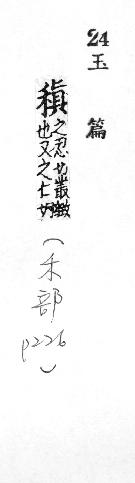 24玉篇
稹
之忍切叢緻
也又之仁切
(禾部p226)